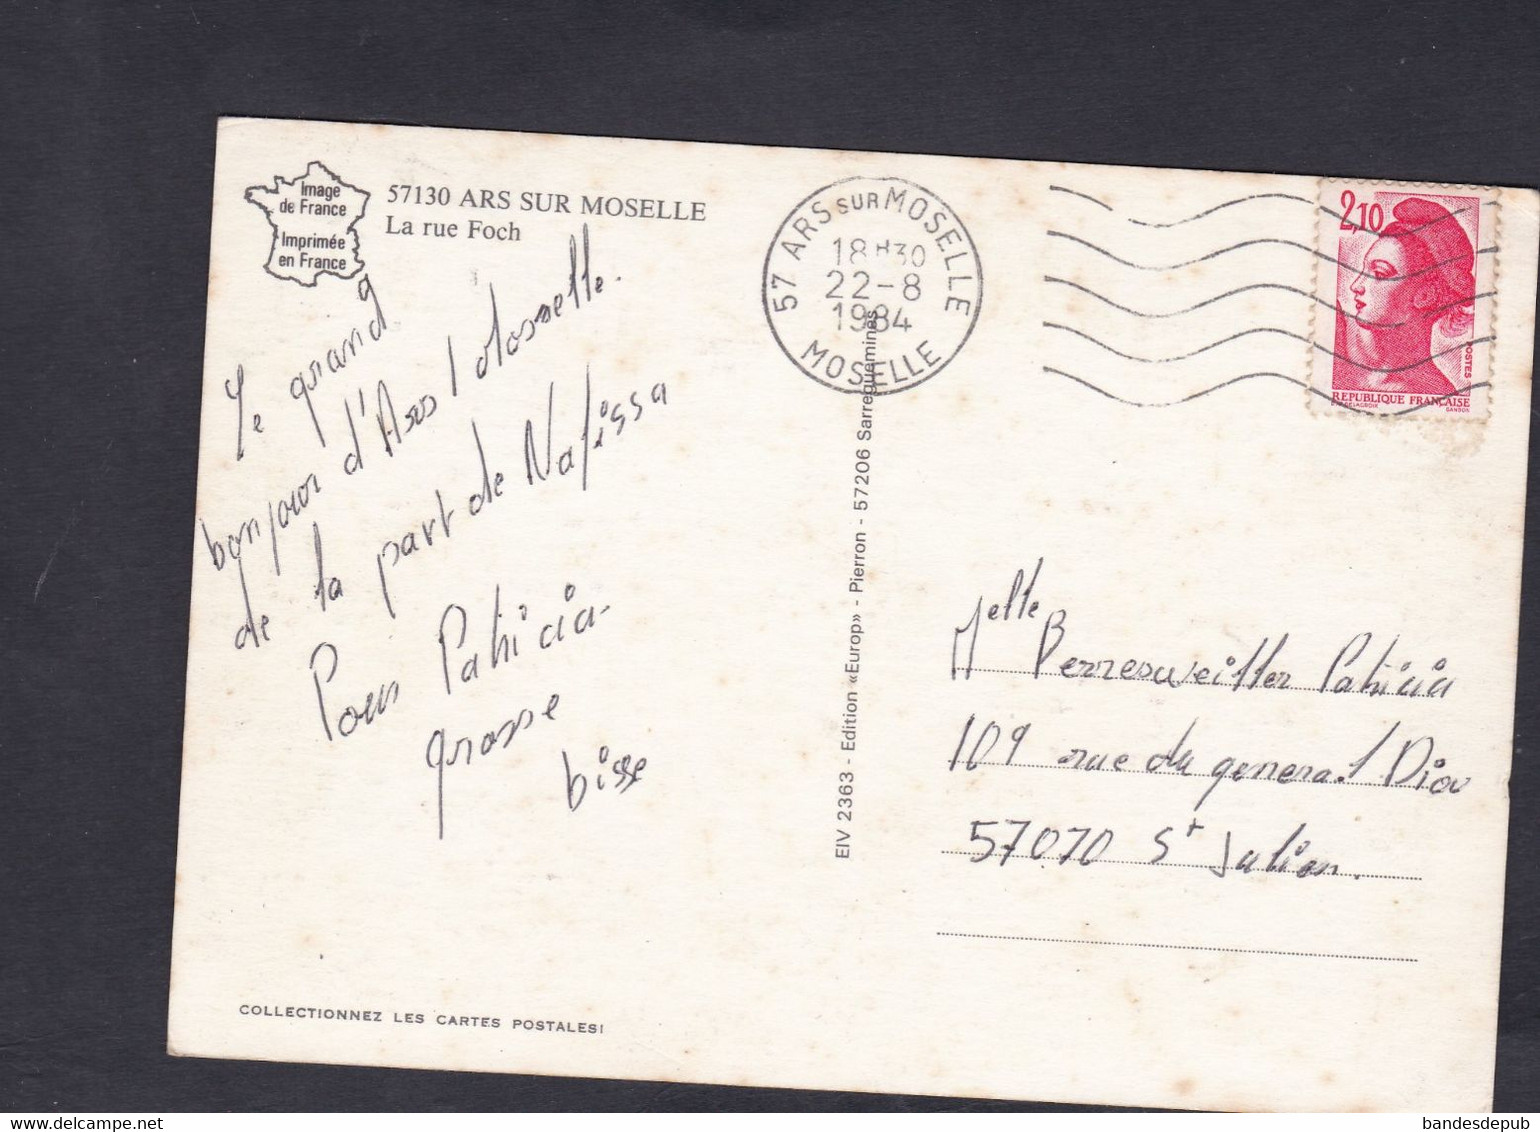 Image
de France
Imprimée
en France
57130 ARS SUR MOSELLE
La rue Foch
Le grand
bonjour d'Ars / Moselle.
de la part de Nafissa
Pour Patricia
grosse
bisse
COLLECTIONNEZ LES CARTES POSTALES!
EIV 2363 - Edition «Europ» - Pierron - 57206 Sarreguemines
57 ARS SUR MOSELLE
18H30
22-8
1984
MOSELLE
2,10
POSTES
REPUBLIQUE FRANÇAISE
GANDON
Melle Perresweitter Patricia
109 rue du general Diou
57070 St Julien.
bandesdepub